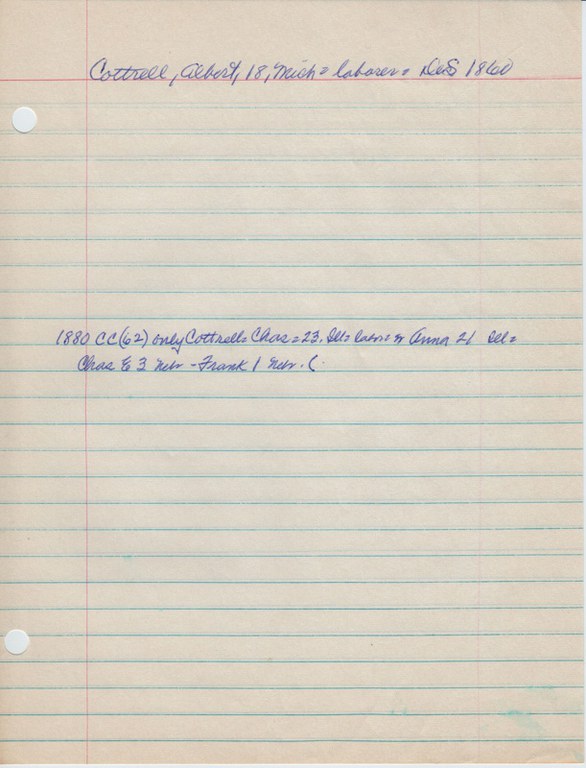 Cottrell, Albert, 18, Mich = laborer = 1860
1880 CC(62) only Cottrell = Chas = 23. Ill = labor = Anna 21 Ill =
Chas E 3 Nebr - Frank 1 Nebr. (